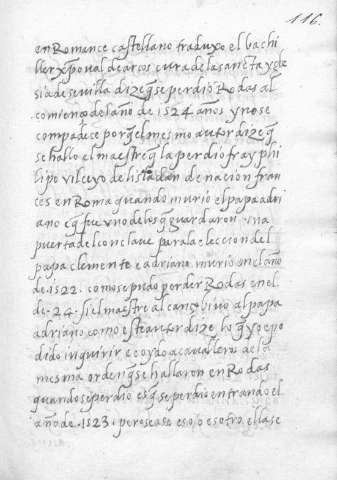 116.
en Romance castellano traduxo el bachi
ller xpoual de arcos cura de la sancta ygle
sia de sevilla dize q̃ se perdio Rodas al
comienço del año de 1524 años y no se
compadece porq̃ el mesmo autor dize q̃
se hallo el maestre q̃ la perdio fray phi
lipo de nacion fran
ces en Roma quando murio el papa adri
ano e q̃ fue uno de los q̃ guardaron una
puerta del conclave para la eleccion del
papa clemente e adriano murio en el año
de 1522. como se pudo perder Rodas en el
de .24. si el maestre alcanço bivo al papa
adriano como este autor dize lo q̃ yo e po
dido inquirir e oydo a cavalleros de la
mesma orden q̃ se hallaron en Rodas
quando se perdio es q̃ se perdio entrando el
año de .1523. pero sea eso o esotro ella se